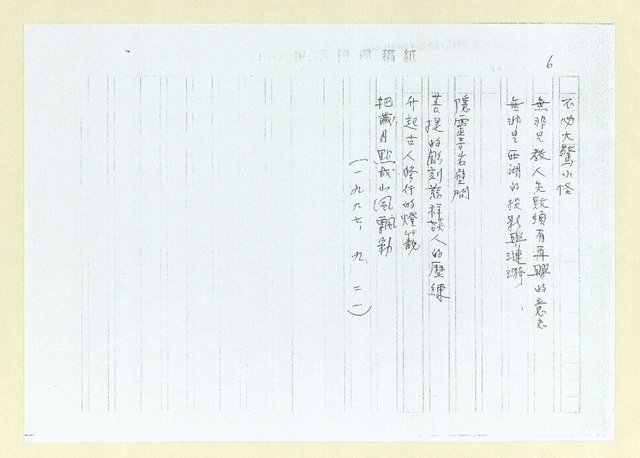 6
不必大驚小怪
無非是教人失敗須有再興的意志
無非是西湖的投影與漣漪
隱靈寺岩壁間
菩提的彫刻慈祥談人的歷練
升起古人修行的燈籠
把歲月點成山風飄動
（一九九七、九、二一）